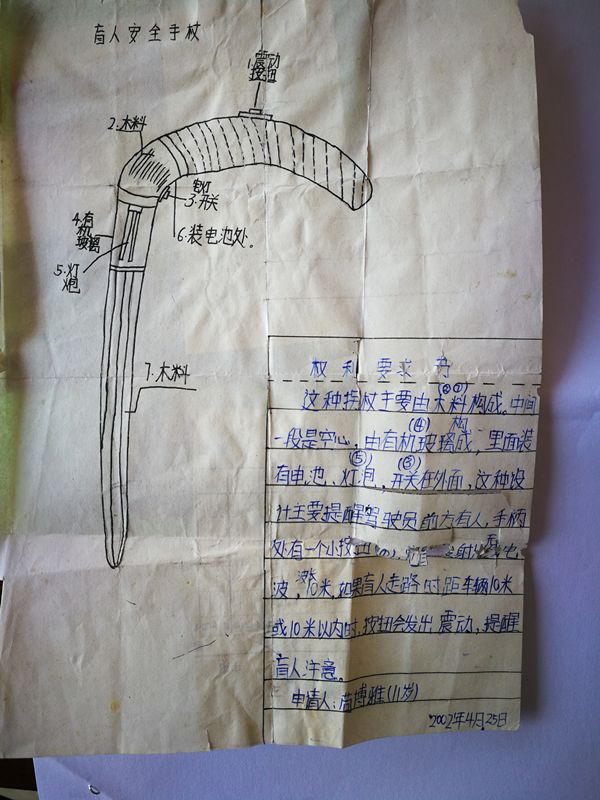 盲人安全手杖
1.震动
按钮
2.木料
灯
3.开关
4.有
机
玻璃
6.装电池处。
5.灯
炮
7.木料
权利要求
这种拐杖主要由木料构成。中间
(②⑦)
一段是空心，由有机玻璃构成，里面装
(④)
有电池、灯泡，开关在外面，这种设
(⑤) (③)
计主要提醒驾驶员前方有人，手柄
处有一个小按 射 电
波， 10米，如果盲人走路时距车辆10米
或10米以内时，按钮会发出震动，提醒
盲人注意。
申请人： 博雅(11岁)
2002年4月25日